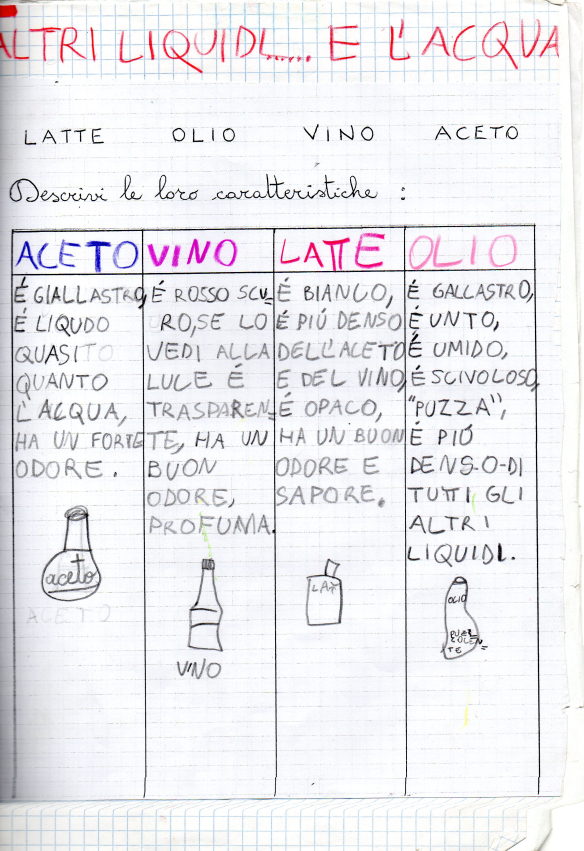 ALTRI LIQUIDI..... E L'ACQUA
LATTE OLIO VINO ACETO
Descrivi le loro caratteristiche :
ACETO
É GIALLASTRO,
É LIQUDO
QUASITO
QUANTO
L'ACQUA,
HA UN FORTE
ODORE.
aceto
ACETO
VINO
É ROSSO SCU=
RO,SE LO
VEDI ALLA
LUCE É
TRASPAREN=
TE, HA UN
BUON
ODORE,
PROFUMA.
VINO
LATTE
É BIANCO,
É PIÚ DENSO
DELL'ACETO
E DEL VINO,
É OPACO,
HA UN BUON
ODORE E
SAPORE.
LAT
OLIO
É GALLASTRO,
É UNTO,
É UMIDO,
É SCIVOLOSO,
"PUZZA",
É PIÓ
DENS-O-DI
TUTTI GLI
ALTRI
LIQUIDI.
OLIO
TE